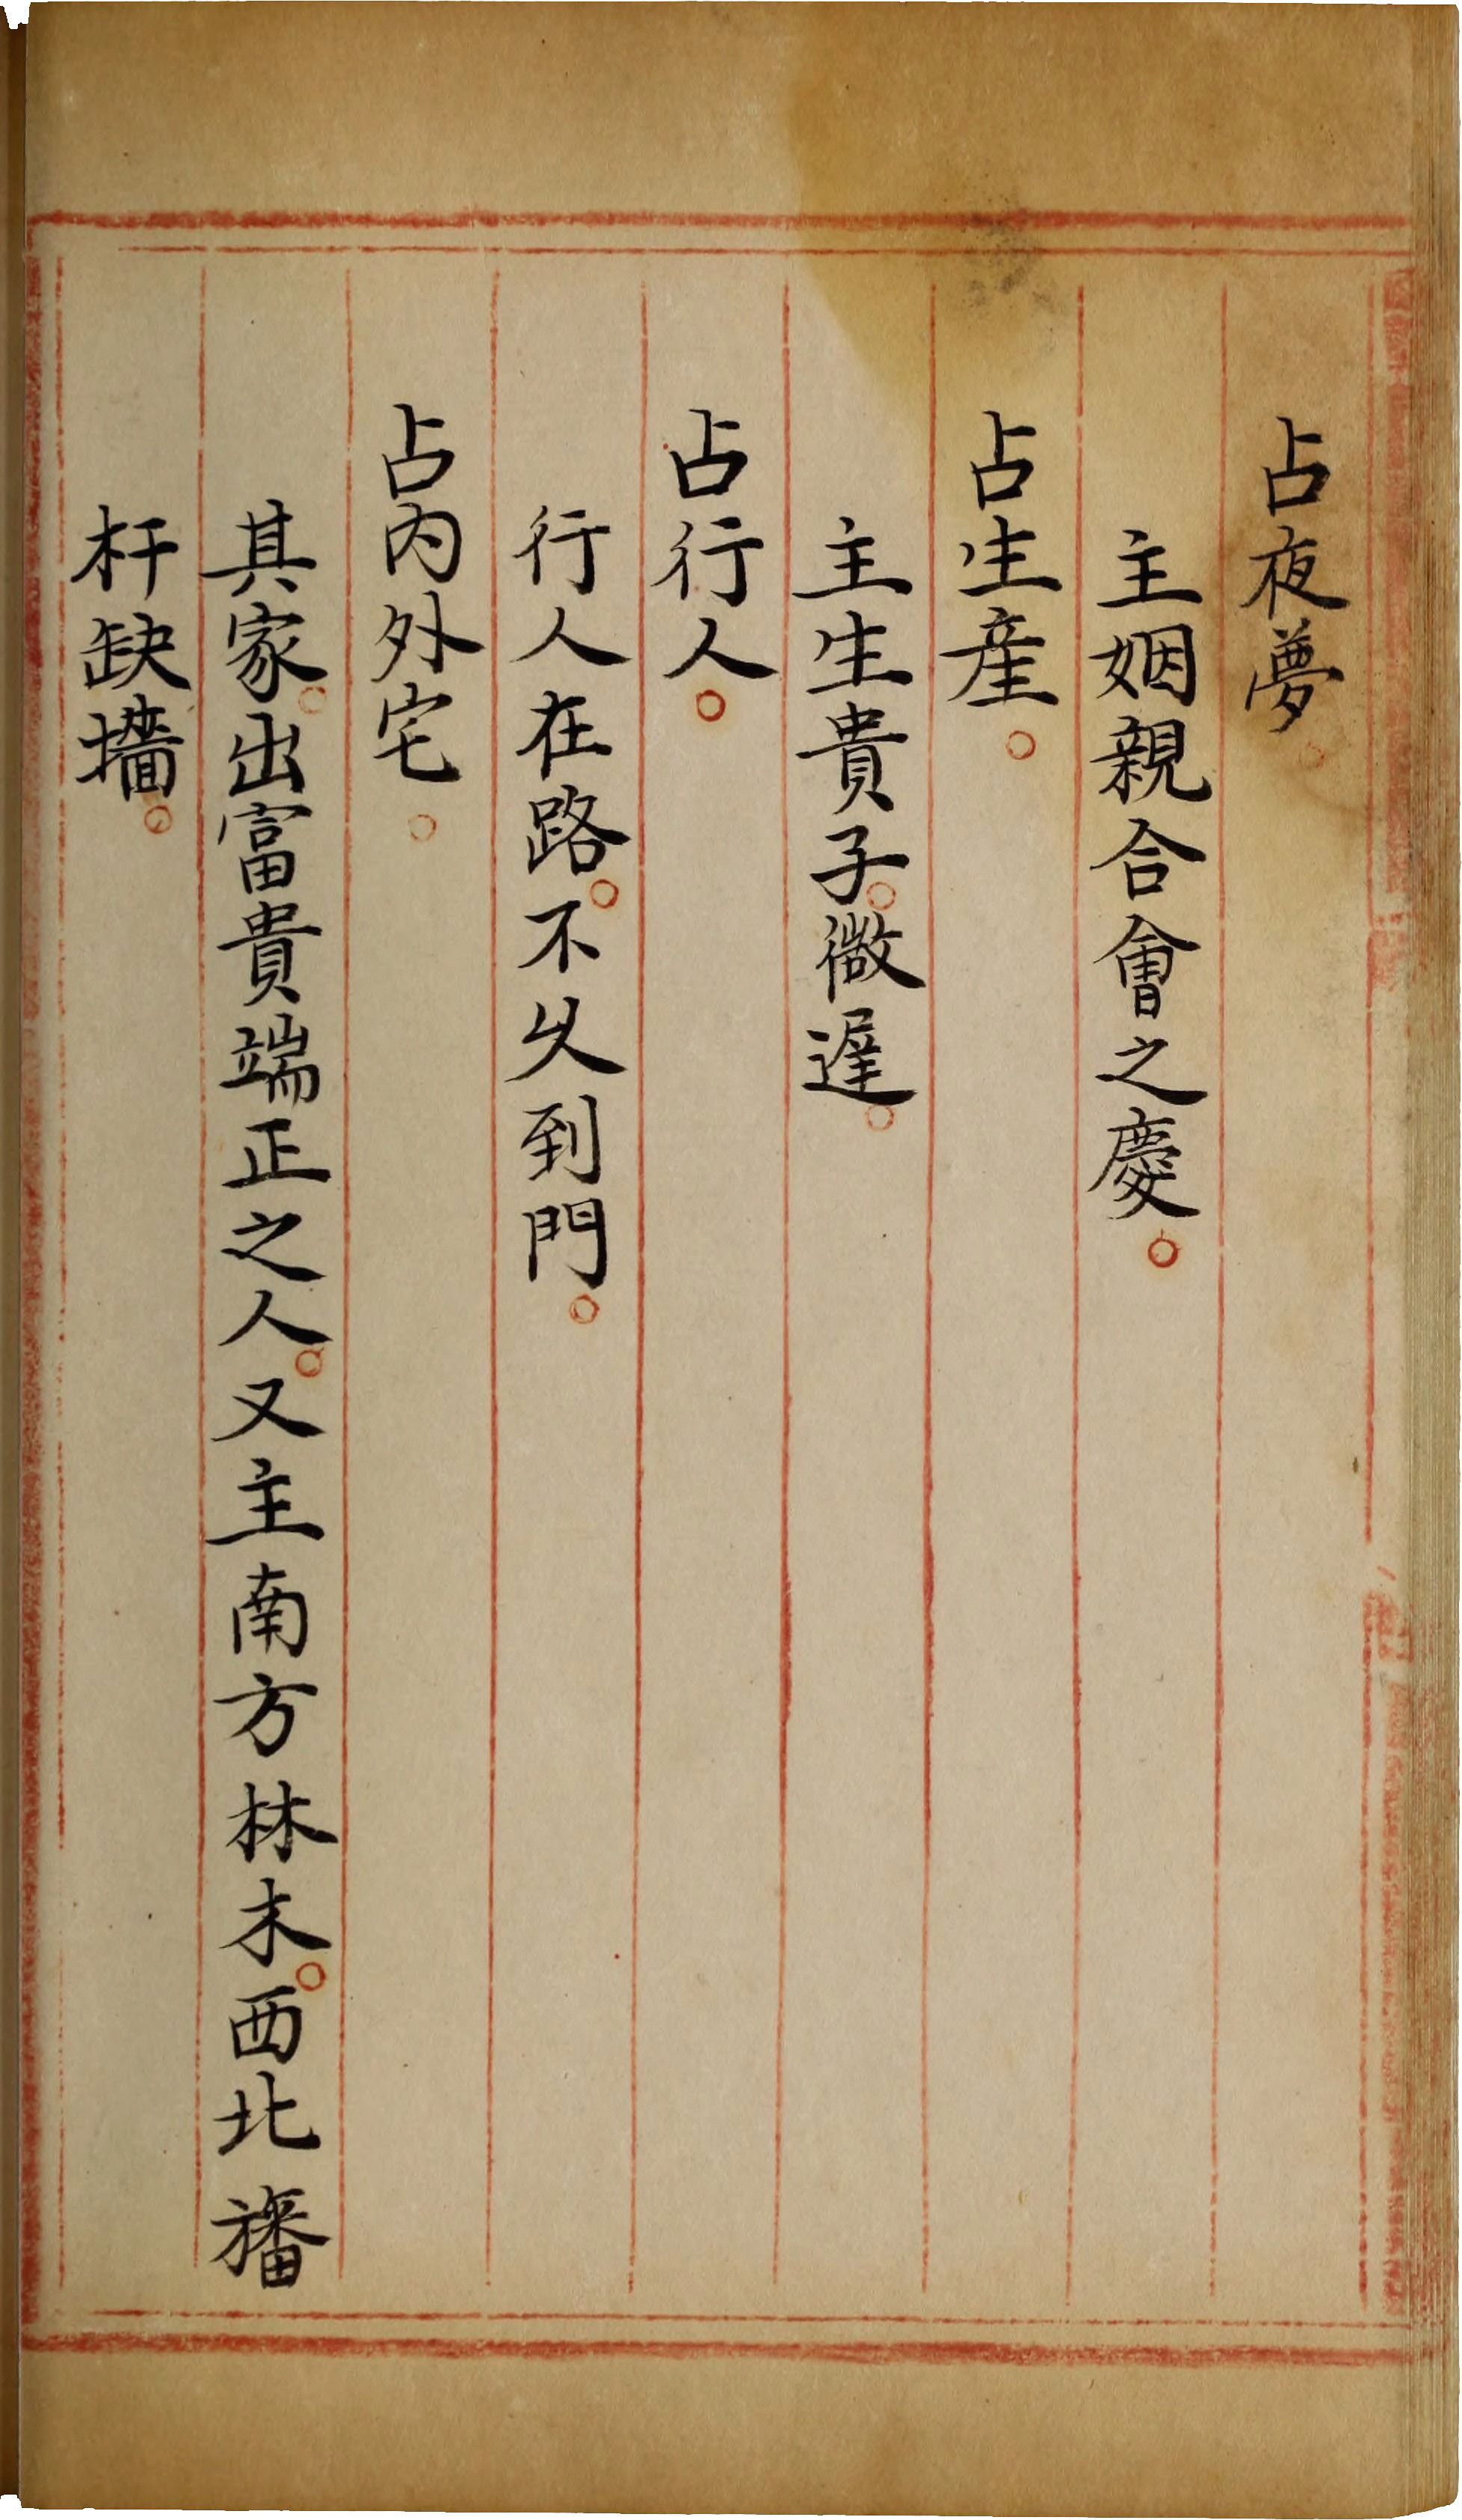 占夜夢。
主姻親合會之慶。
占生産。
主生貴子。微遲。
占行人。
行人在路。不久到門。
占内外宅。
其家。出富貴端正之人。又主南方林木。西北旛
杆缺墻。